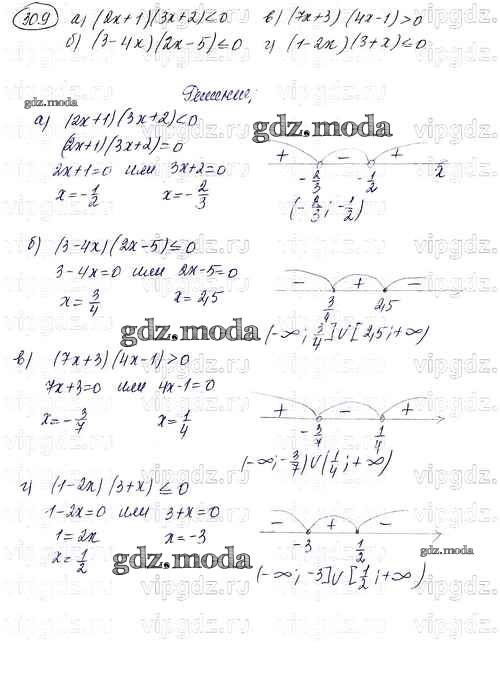 30.9 а) (2x+1)(3x+2)<0 в) (7x+3)(4x-1)>0
б) (3-4x)(2x-5)≤0 г) (1-2x)(3+x)≤0
Решение:
gdz.moda
а) (2x+1)(3x+2)<0
gdz.moda
(2x+1)(3x+2)=0
2x+1=0 или 3x+2=0
x=-1/2 x=-2/3
+ - +
-2/3 -1/2 x
(-2/3; -1/2)
б) (3-4x)(2x-5)≤0
3-4x=0 или 2x-5=0
x=3/4 x=2,5
- + -
3/4 2,5
gdz.moda
(-∞; 3/4]∪[2,5; +∞)
в) (7x+3)(4x-1)>0
7x+3=0 или 4x-1=0
x=-3/7 x=1/4
+ - +
-3/7 1/4
(-∞; -3/7)∪(1/4; +∞)
г) (1-2x)(3+x)≤0
1-2x=0 или 3+x=0
1=2x x=-3
x=1/2
- + -
-3 1/2
gdz.moda
gdz.moda
(-∞; -3]∪[1/2; +∞)
vipgdz.ru